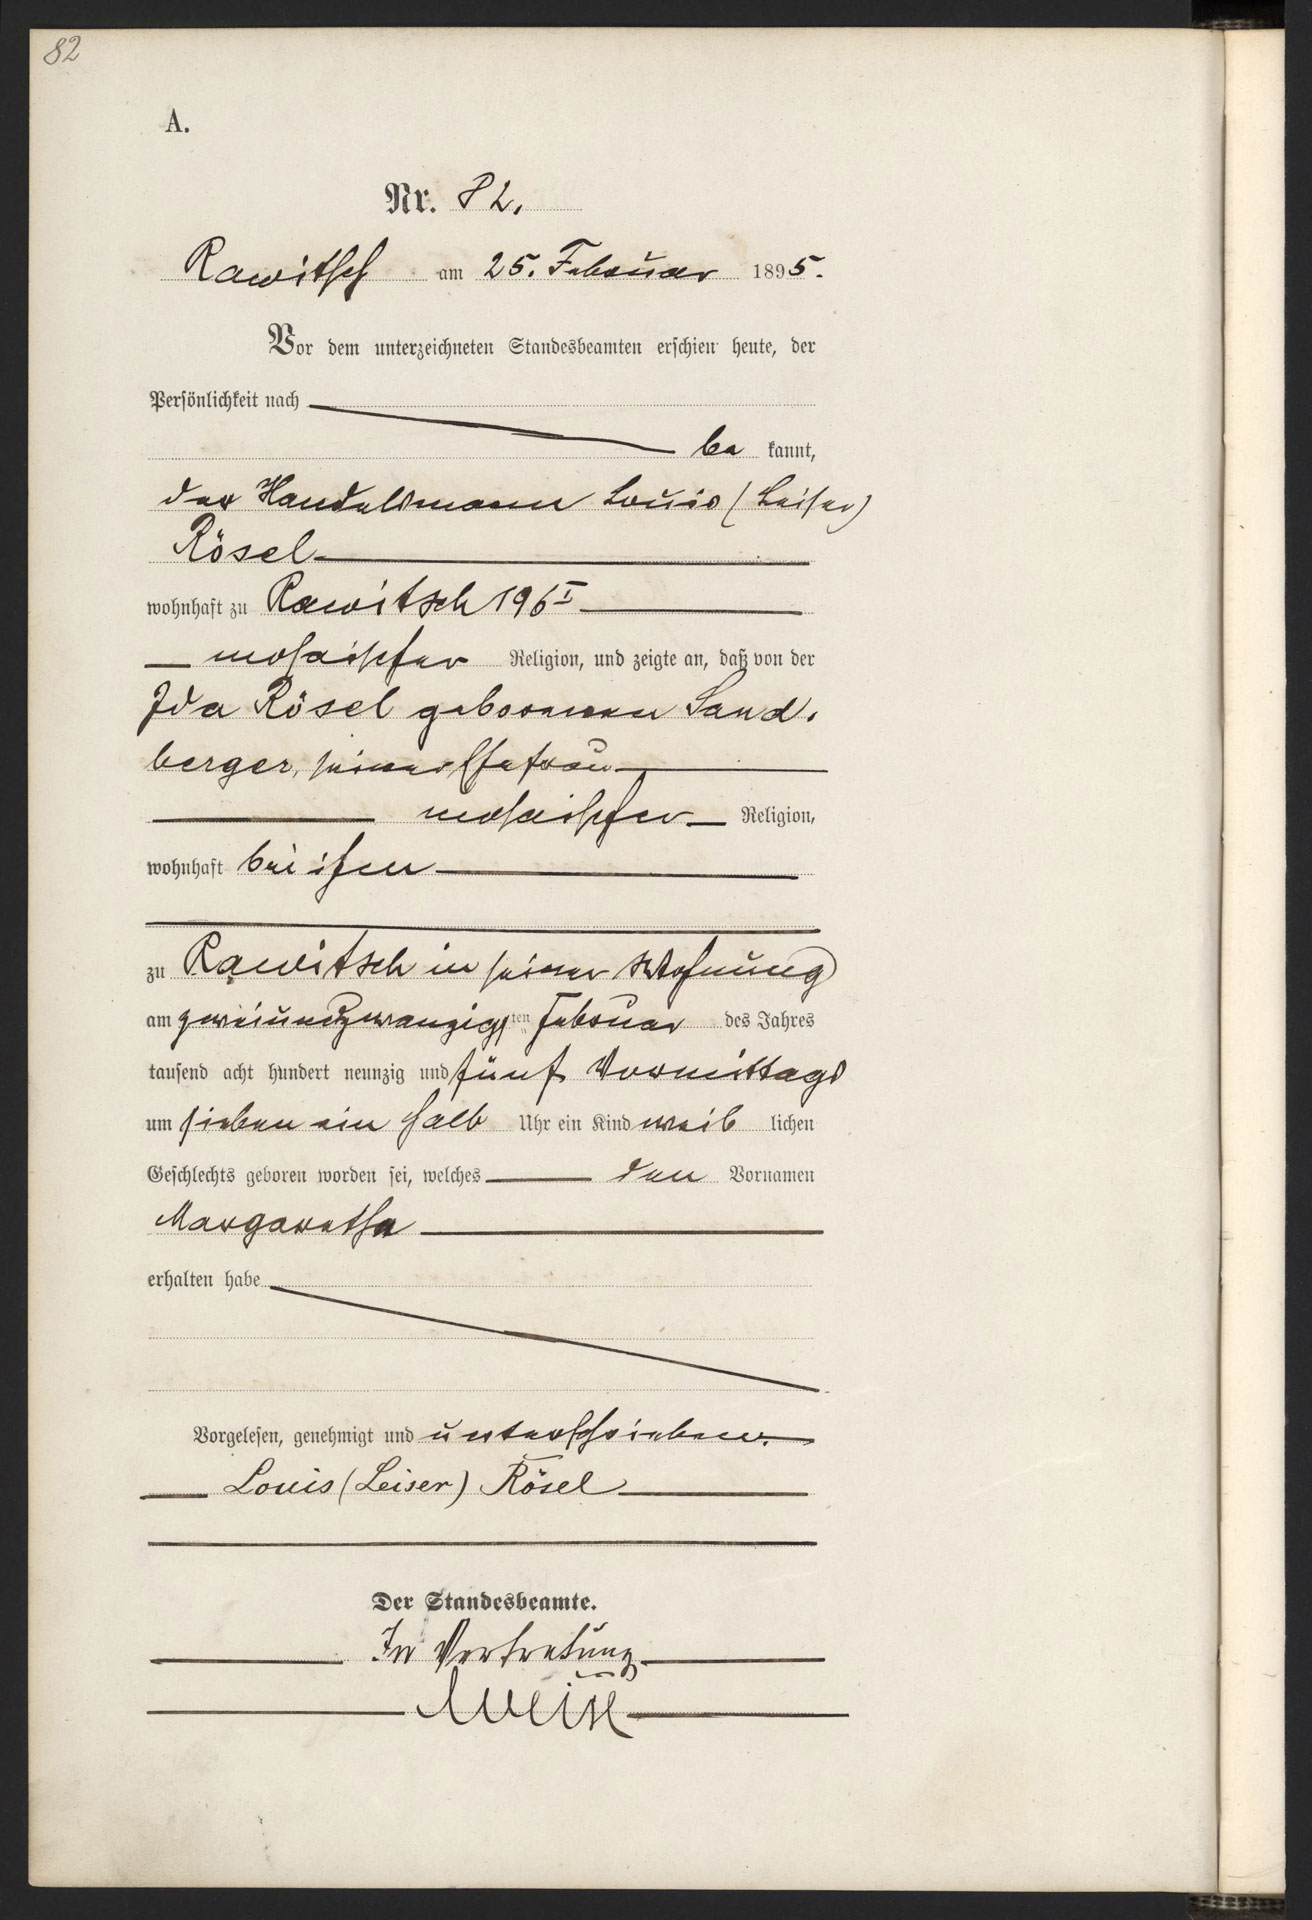 82
A.
Nr. 82.
Rawitsch am 25. Februar 1895.
Vor dem unterzeichneten Standesbeamten erschien heute, der
Persönlichkeit nach
be kannt,
der Handelsmann Louis (Leiser)
Rösel
wohnhaft zu Rawitsch 196 I
mosaischer Religion, und zeigte an, daß von der
Ida Rösel geborenen Sand-
berger, seiner Ehefrau
mosaischer Religion,
wohnhaft bei ihm
zu Rawitsch in seiner Wohnung
am zweiundzwanzigsten Februar des Jahres
tausend acht hundert neunzig und fünf Vormittags
um sieben ein halb Uhr ein Kind weib lichen
Geschlechts geboren worden sei, welches den Vornamen
Margaretha
erhalten habe
Vorgelesen, genehmigt und unterschrieben.
Louis (Leiser) Rösel
Der Standesbeamte.
In Vertretung
Weise